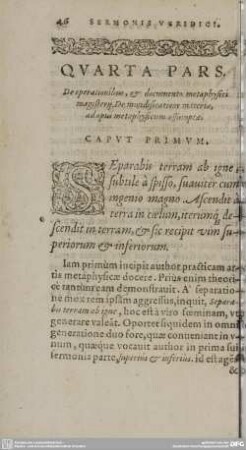 46 SERMONIS VERIDICI.
QVARTA PARS.
De operationibus, & documento metaphysici
magisterij. De mundificatione materiæ,
ad opus metaphysicum assumptæ.
CAPVT PRIMVM.
SEparabis terram ab igne
subtile à spisso, suauiter cum
ingenio magno. Ascendit à
terra in cœlum, iterumq́; de-
scendit in terram, & sic recipit vim su-
periorum & inferiorum.
Iam primùm incipit author practicam ar-
tis metaphysicæ docere. Priùs enim theori-
cè tantùm eam demonstrauit. A' separatio-
ne mox rem ipsam aggressus, inquit, Separa-
bis terram ab igne, hoc est à viro fœminam, vt
generare valeāt. Oportet siquidem in omni
generatione duo fore, quæ conueniant in v-
num, quæque vocauit author in prima sui
sermonis parte, superius & inferius. id est agēs
& c